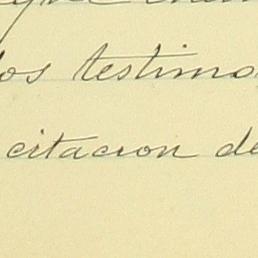 los testimo
citacion de